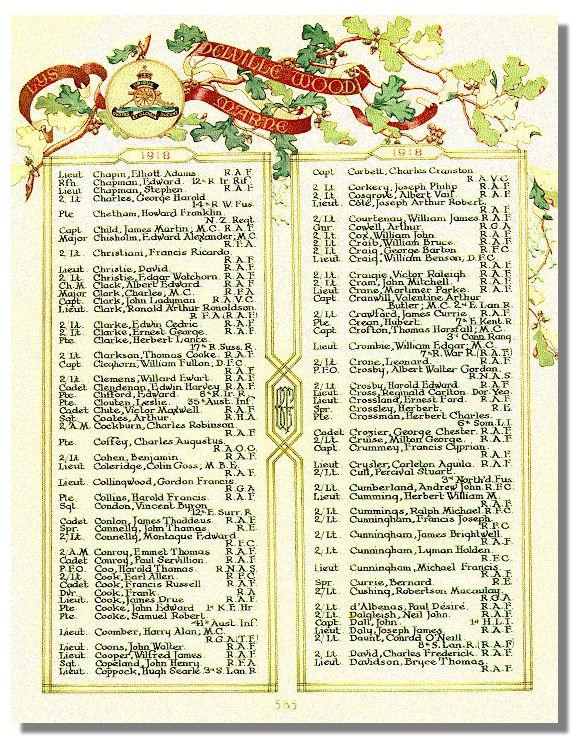 LYS
DELVILLE WOOD
MARNE
1918
Lieut Chapin, Elliott Adams R.A.F.
Rfn. Chapman, Edward. 12th R. Ir. Rif.
Lieut Chapman, Stephen R.A.F.
2/Lt Charles, George Harold
14th R.W. Fus.
Pte Chetham, Howard Franklin
N.Z. Regt.
Capt Child, James Martin; M.C. R.A.F.
Major Chisholm, Edward Alexander; M.C.
R.F.A.
2/Lt Christiani, Francis Ricardo.
R.A.F.
Lieut Christie, David. R.A.F.
2/Lt Christie, Edgar Watchorn. R.A.F.
Ch.M. Clack, Albert Edward. R.A.F.
Major Clark, Charles; M.C. R.F.A.
Capt Clark, John Ladyman R.A.V.C.
Lieut Clark, Ronald Arthur Ronaldson
R.F.A. (R.A.F.)
2/Lt Clarke, Edwin Cedric R.A.F.
2/Lt Clarke, Ernest George. R.A.F.
Pte Clarke, Herbert Lance
17th R. Suss. R.
2/Lt Clarkson, Thomas Cooke. R.A.F.
Capt Cleghorn, William Fulton, D.F.C.
R.A.F.
2/Lt Clemens, Willard Ewart. R.A.F.
Cadet Clendenan, Edwin Harvey R.A.F.
Pte Clifford, Edward. 8th R. Ir. R.
Pte Clouten, Leslie. 35th Aust. Inf.
Cadet Clute, Victor Maxwell R.A.F.
Sgt Coates, Arthur R.H.A.
2/A.M. Cockburn, Charles Robinson
R.A.F.
Pte Coffey, Charles Augustus.
R.A.O.C.
2/Lt Cohen, Benjamin. R.A.F.
Lieut Coleridge, Colin Goss, M.B.E.
R.A.F.
Lieut Collingwood, Gordon Francis.
R.G.A.
Pte Collins, Harold Francis. R.A.F.
Sgt Condon, Vincent Byron
12th E. Surr. R.
Cadet Conlon, James Thaddeus R.A.F.
Spr. Connelly, John Thomas R.E.
2/Lt Connelly, Montague Edward
R.F.C.
2/A.M. Conroy, Emmet Thomas R.A.F.
Cadet Conroy, Paul Servillion R.A.F.
P.F.O. Coo, Harold Thomas R.N.A.S.
2/Lt Cook, Earl Allen R.F.C.
Cadet Cook, Francis Russell R.A.F.
Dvr. Cook, Frank R.A.
Lieut. Cook, James Drue R.A.F.
Pte Cooke, John Edward 1st K.E. Hr
Pte Cooke, Samuel Robert
41st Aust. Inf.
Lieut Coomber, Harry Alan; M.C.
R.G.A. T.F.
Lieut Coons, John Walter R.A.F.
Lieut Cooper, Wilfred James R.A.F.
Sgt. Copeland, John Henry R.F.A.
Lieut Coppock, Hugh Searle 3rd S. Lan. R.
1918
Capt Corbett, Charles Cranston
R.A.V.C.
2/Lt Corkery, Joseph Philip R.A.F.
2/Lt Cosgrave, Albert Vair R.A.F.
Lieut Côté, Joseph Arthur Robert.
R.A.F.
2/Lt Courtenay, William James R.A.F.
Gnr. Cowell, Arthur R.G.A.
2/Lt Cox, William John R.A.F.
2/Lt Craib, William Bruce. R.A.F.
2/Lt Craig, George Barton R.F.C.
Lieut Craig, William Benson, D.F.C.
R.A.F.
2/Lt Craigie, Victor Raleigh R.A.F.
2/Lt Cram, John Mitchell. R.A.F.
Lieut Crane, Mortimer Parke. R.A.F.
Capt Cranwill, Valentine Arthur
Butler; M.C. 2nd E. Lan. R.
2/Lt Crawford, James Currie. R.A.F.
Pte Crean, Hubert. 7th E. Kent. R.
Capt Crofton, Thomas Horsfall; M.C.
3rd Conn. Rang.
Lieut Crombie, William Edgar, M.C.
7th R. War. R. (R.A.F.)
2/Lt Crone, Leonard. R.A.F.
P.F.O. Crosby, Albert Walter Gordon.
R.N.A.S.
2/Lt Crosby, Harold Edward R.A.F.
Lieut Cross, Reginald Carlton. Dor. Yeo.
Lieut Crossland, Ernest Ford. R.A.F.
Spr. Crossley, Herbert. R.E.
Pte Crossman, Herbert Charles
6th Som. L.I.
Cadet Crozier, George Chester R.A.F.
2/Lt Cruise, Milton George. R.A.F.
Capt Crummey, Francis Cyprian.
R.A.F.
Lieut Crysler, Carleton Aquila. R.A.F.
2/Lt Cull, Percival Stuart.
3rd North'd. Fus.
2/Lt Cumberland, Andrew John R.F.C.
Lieut Cumming, Herbert William M.
R.A.F.
2/Lt Cummings, Ralph Michael R.F.C.
2/Lt Cunningham, Francis Joseph.
R.F.C.
2/Lt Cunningham, James Brightwell
R.A.F.
2/Lt Cunningham, Lyman Holden
R.F.C.
Lieut Cunningham, Michael Francis
R.A.F.
Spr. Currie, Bernard. R.E.
2/Lt Cushing, Robertson Macaulay.
R.G.A.
2/Lt d'Albenas, Paul Désiré. R.A.F.
2/Lt Dalgleish, Neil John. R.A.F.
Capt. Dall, John. 1st H.L.I.
Lieut Daly, Joseph James R.A.F.
2/Lt Daunt, Conrad O'Neill
8th S. Lan. R. (R.A.F.)
2/Lt David, Charles Frederick. R.A.F.
Lieut Davidson, Bryce Thomas.
R.A.F.
585